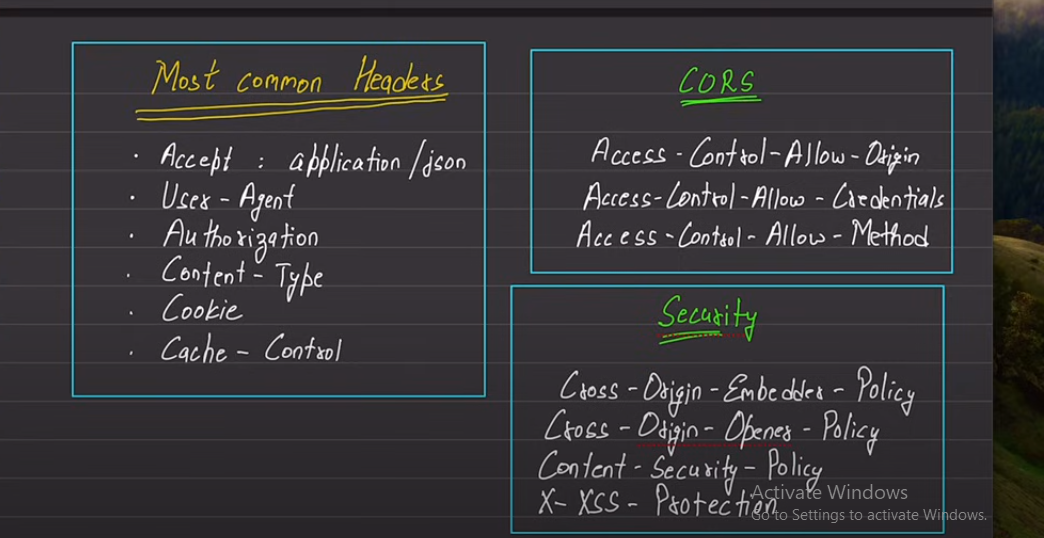 Most common Headers
· Accept : application/json
· User - Agent
· Authorization
· Content - Type
· Cookie
· Cache - Control
CORS
Access - Control - Allow - Origin
Access - Control - Allow - Credentials
Access - Control - Allow - Method
Security
Cross - Origin - Embedder - Policy
Cross - Origin - Opener - Policy
Content - Security - Policy
X - XSS - Protection
Activate Windows
Go to Settings to activate Windows.